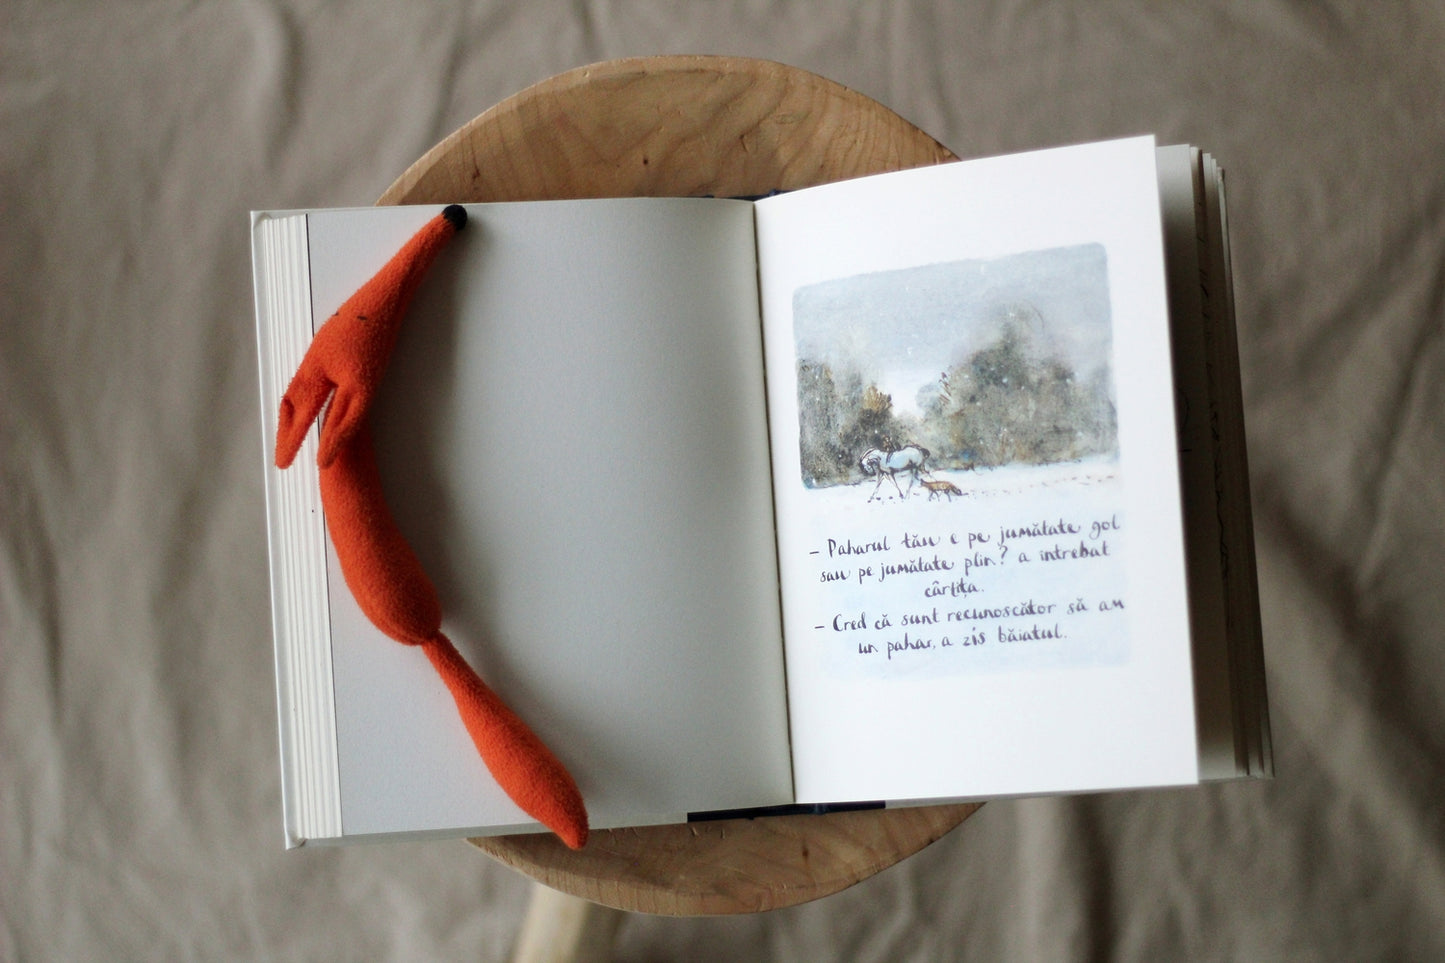 – Paharul tău e pe jumătate gol
sau pe jumătate plin? a întrebat
cârtița.
– Cred că sunt recunoscător să am
un pahar, a zis băiatul.